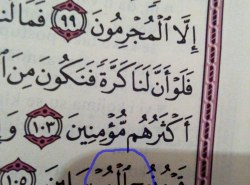 إِلَّا ٱلْمُجْرِمُونَ ٩٩ فَمَا لَنَا
فَلَوْ أَنَّ لَنَا كَرَّةً فَنَكُونَ مِنَ
أَكْثَرُهُم مُّؤْمِنِينَ ١٠٣
١٠٥